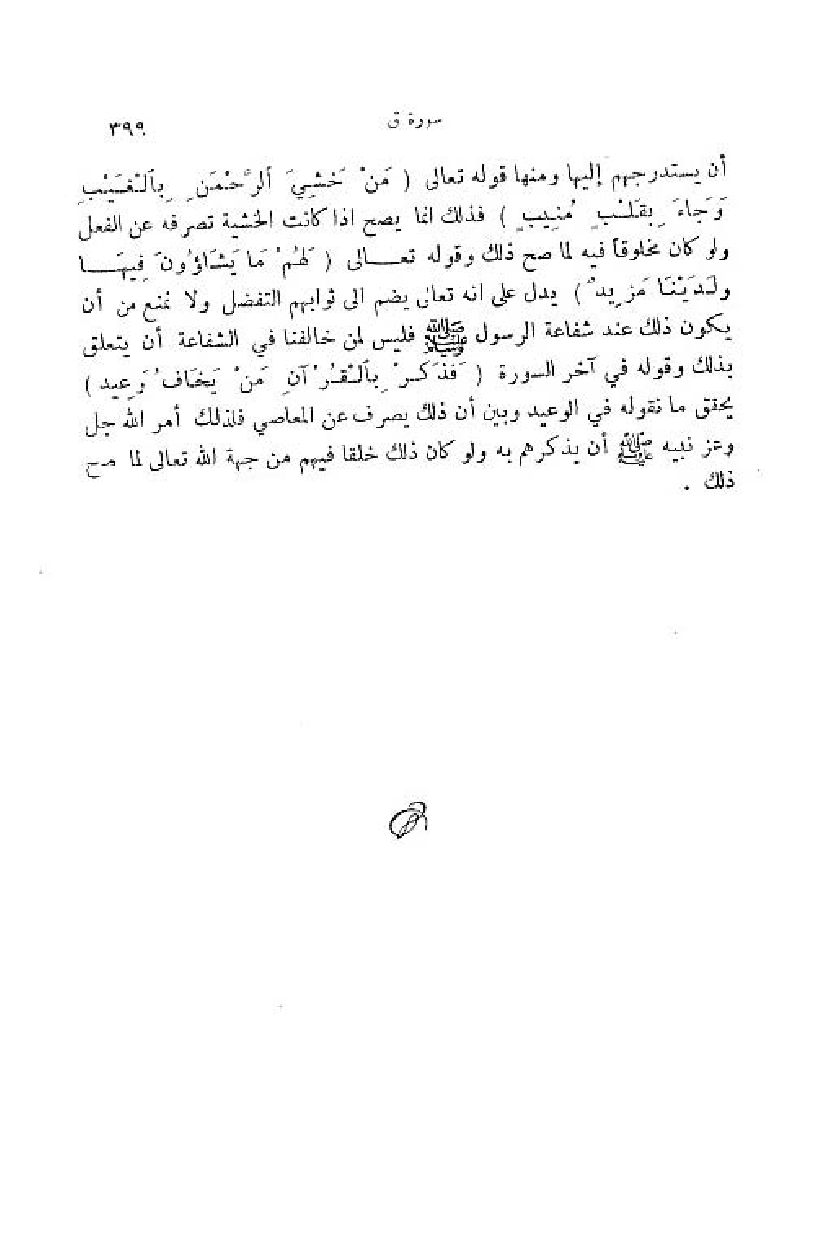 سورة ق
٣٩٩
أن يستدرجهم إليها ومنها قوله تعالى ( مَنْ خَشِيَ الرَّحْمَنَ بِالْغَيْبِ
وَجَاءَ بِقَلْبٍ مُنِيبٍ ) فذلك انما يصح اذا كانت الخشية تصرفه عن الفعل
ولو كان مخلوقاً فيه لما صح ذلك وقوله تعـــالى ( لَهُمْ مَا يَشَاؤُونَ فِيهَـــا
ولَدَيْنَا مَزِيدٌ ) يدل على انه تعالى يضم الى ثوابهم التفضل ولا نمنع من أن
يكون ذلك عند شفاعة الرسول ﷺ فليس لمن خالفنا في الشفاعة أن يتعلق
بذلك وقوله في آخر السورة ( فَذَكِّرْ بِالْقُرْآنِ مَنْ يَخَافُ وَعِيدِ )
يحقق ما نقوله في الوعيد وبين أن ذلك يصرف عن المعاصي فلذلك أمر الله جل
وعز نبيه ﷺ أن يذكرهم به ولو كان ذلك خلقا فيهم من جهة الله تعالى لما صح
ذلك .